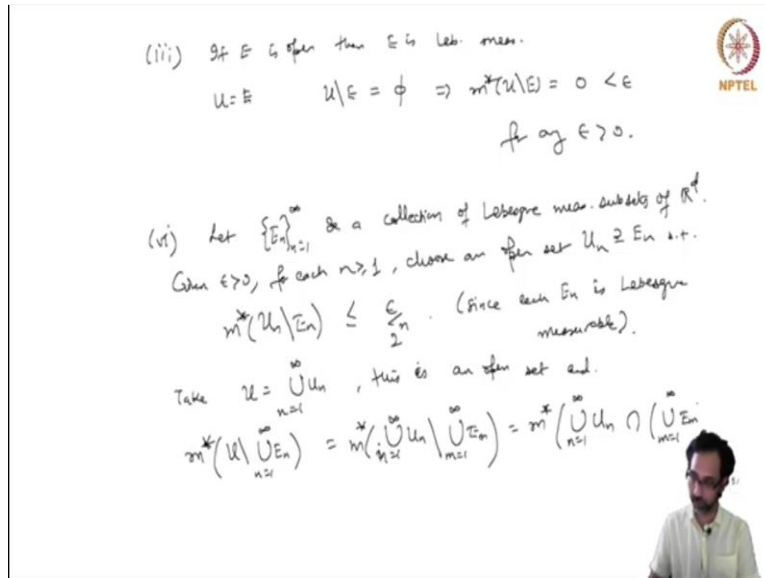 (iii) If E is open then E is Leb. meas.
U = E U\E = φ ⇒ m*(U\E) = 0 < ε
for any ε > 0.
NPTEL
(vi) Let {En}_{n=1}^∞ be a collection of Lebesgue meas. subsets of ℝ^d.
Given ε>0, for each n≥1, choose an open set Un ⊇ En s.t.
m*(Un\En) ≤ ε/2^n. (since each En is Lebesgue
measurable).
Take U = ⋃_{n=1}^∞ Un, this is an open set and.
m*(U\⋃_{n=1}^∞ En) = m*(⋃_{n=1}^∞ Un \ ⋃_{m=1}^∞ Em) = m*(⋃_{n=1}^∞ Un ∩ (⋃_{m=1}^∞ Em